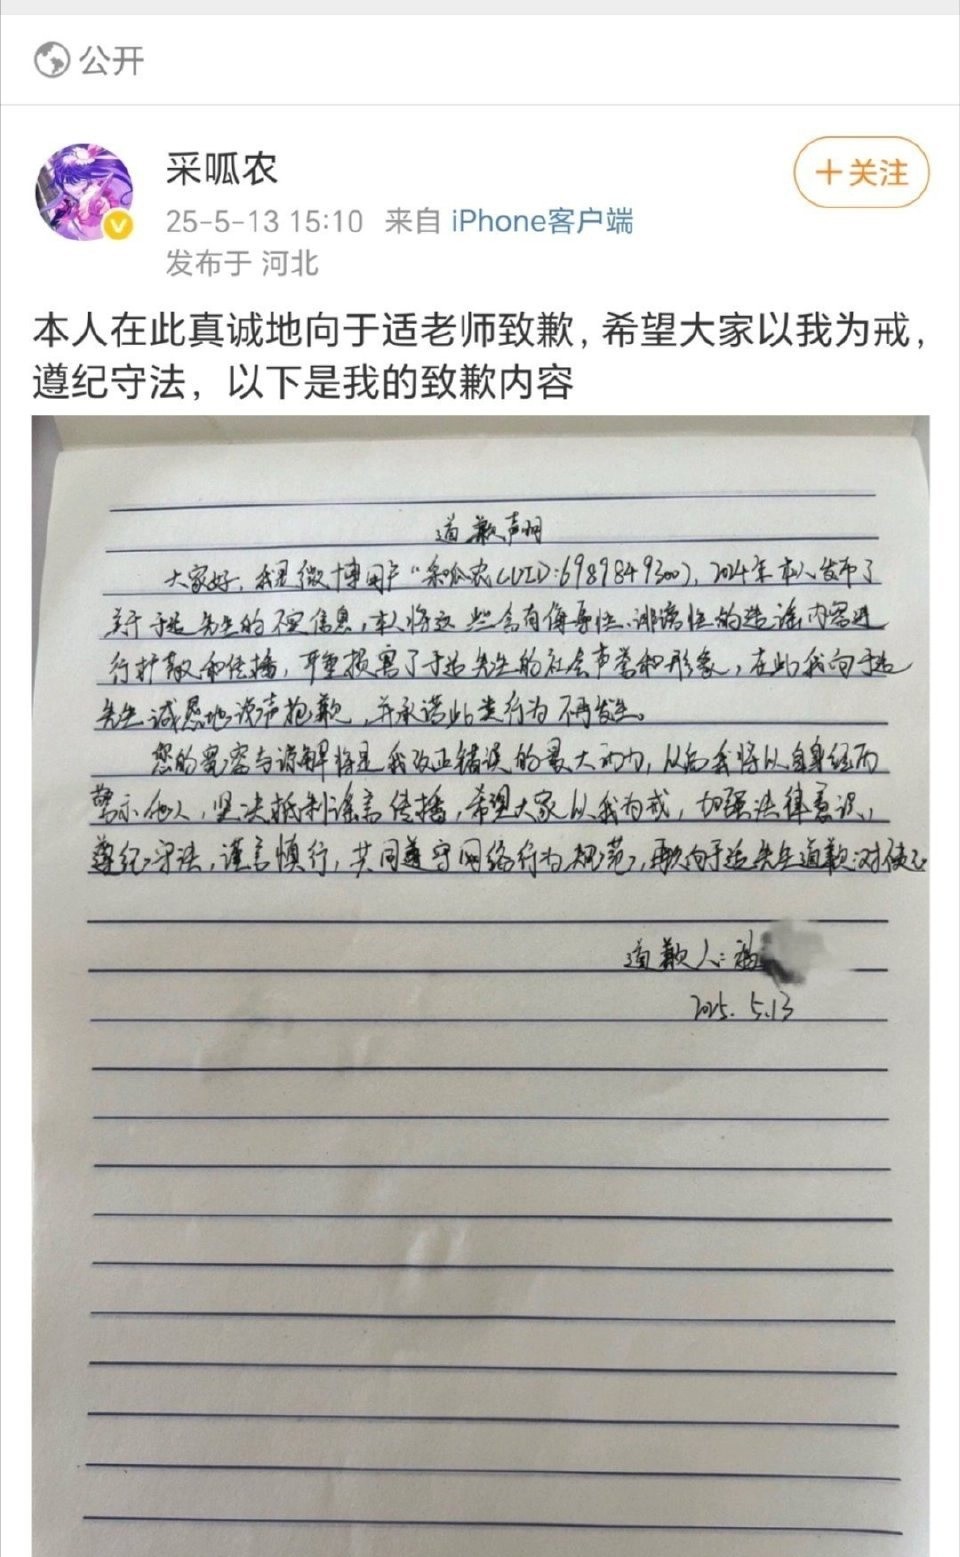 公开
采呱农
+关注
25-5-13 15:10 来自 iPhone客户端
发布于 河北
本人在此真诚地向于适老师致歉，希望大家以我为戒，
遵纪守法，以下是我的致歉内容
道歉声明
大家好，我是微博用户“采呱农(UID:6989849300)，2024年本人发布了
关于于适先生的不实信息，本人将这些含有侮辱性、诽谤性的造谣内容进
行扩散和传播，严重损害了于适先生的社会声誉和形象，在此我向于适
先生诚恳地说声抱歉，并承诺此类行为不再发生。
您的宽容与谅解将是我改正错误的最大动力，以后我将以自身经历
警示他人，坚决抵制谣言传播，希望大家以我为戒，加强法律意识，
遵纪守法，谨言慎行，共同遵守网络行为规范，再次向于适先生道歉，对使不
道歉人：
2025.5.13